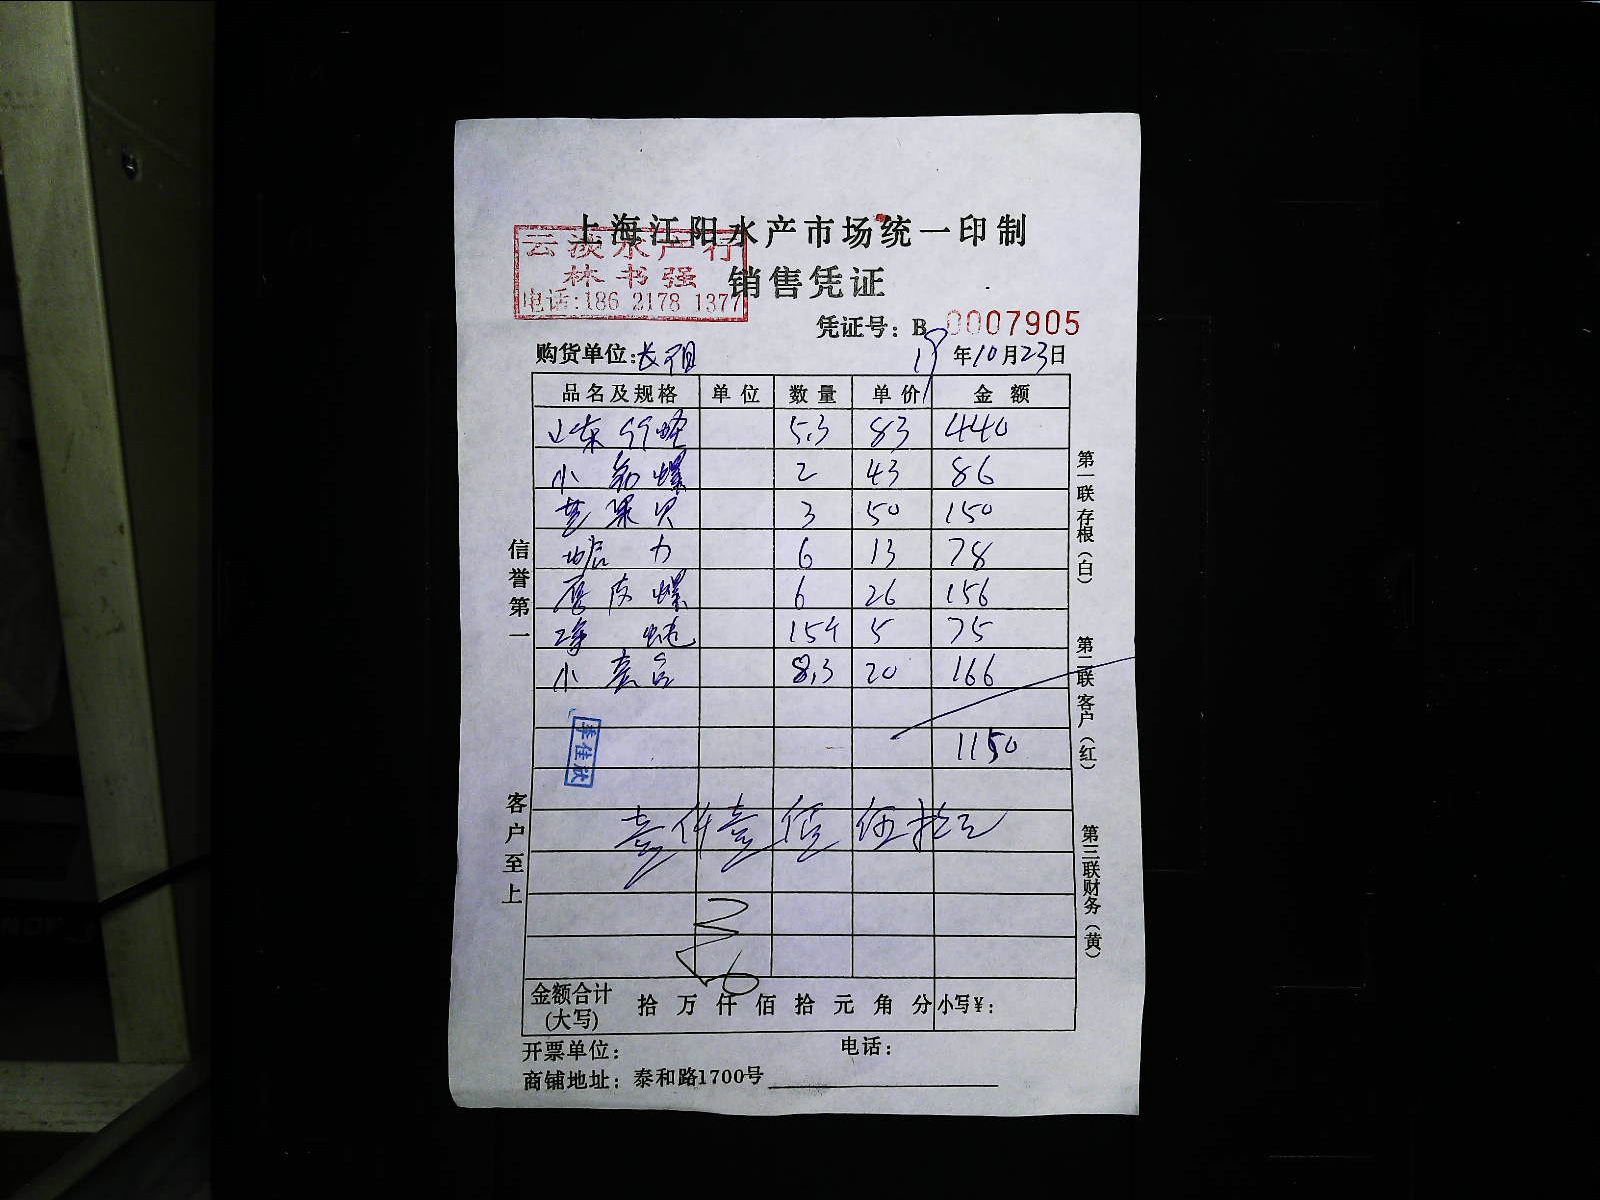 上海江阳水产市场统一印制
云淡水产行
林书强
电话:186 2178 1377
销售凭证
凭证号: B 0007905
购货单位:长
19年10月23日
品名及规格 单位 数量 单价 金额
山东 5.3 83 440
小 螺 2 43 86
芒果贝 3 50 150
6 13 78
螺 6 26 156
5 75
小 8.3 20 166
1150
李佳欣
壹仟壹佰伍拾元
金额合计(大写) 拾 万 仟 佰 拾 元 角 分 小写¥:
开票单位: 电话:
商铺地址: 泰和路1700号
信誉第一
客户至上
第一联存根(白)
第二联客户(红)
第三联财务(黄)